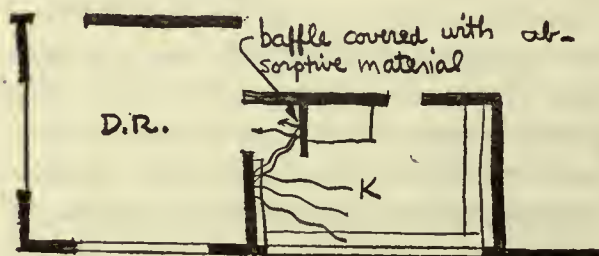 baffle covered with ab-
sorptive material
D.R.
K